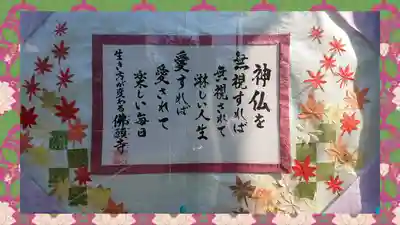 神仏を
無視すれば
無視されて
淋しい人生
愛すれば
愛されて
楽しい毎日
生き方が変わる佛願寺